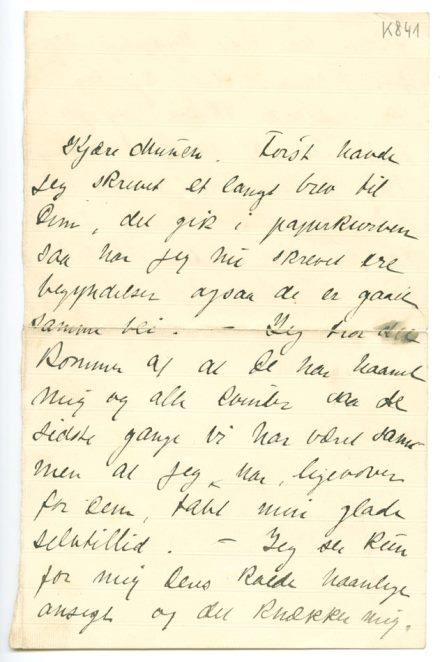 K841
Kjære Munch. Først havde
jeg skrevet et langt brev til
Dem, det gik i papirkurven
saa har jeg nu skrevet tre
begyndelser ogsaa de er gaaet
samme vei. – Jeg tror det
kommer af at De har haanet
mig og alle kvinder saa de
sidste gange vi har været sam-
men at jeg har, ligeover
for Dem, tabt min glade
selvtillid. – Jeg ser kun
for mig Deres kolde haanlige
ansigt og det knækker mig.